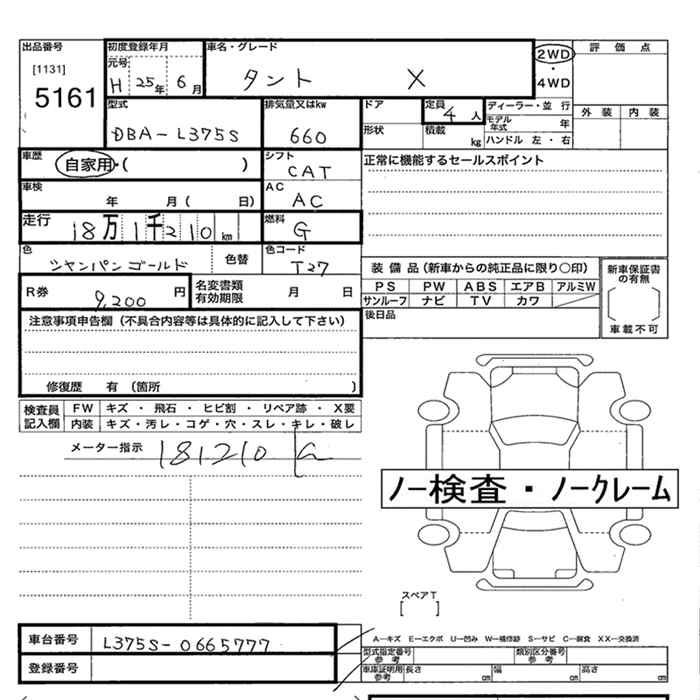 出品番号 初度登録年月 車名・グレード 2WD 評価点
[1131] 元号
5161 H 25年 6月 タント X ・ 4WD
型式 排気量又はkw ドア 定員 4人 ディーラー・並 行 外装 内装
DBA-L375S 660 形状 積載 kg モデル年式 年
ハンドル 左・右
車歴 自家用・( ) シフト CAT 正常に機能するセールスポイント
車検 年 月( 日) AC AC
走行 18万1千210km 燃料 G
色 シャンパンゴールド 色替 色コード T27
装備品(新車からの純正品に限り〇印) 新車保証書の有無
R券 9,200円 名変書類有効期限 月 日 PS PW ABS エアB アルミW
サンルーフ ナビ TV カワ
注意事項申告欄(不具合内容等は具体的に記入して下さい) 後日品 車載不可
修復歴 有(箇所 )
検査員記入欄 FW キズ・飛石・ヒビ割・リペア跡・X要
内装 キズ・汚レ・コゲ・穴・スレ・キレ・破レ
メーター指示 181210
ノー検査・ノークレーム
スペアT
[ ]
車台番号 L375S-0665777 A―キズ E―エクボ U―凹み W―補修跡 S―サビ C―腐食 XX―交換済
型式指定番号 参考 類別区分番号 参考
登録番号 車庫証明用 参考 長さ cm 幅 cm 高さ cm